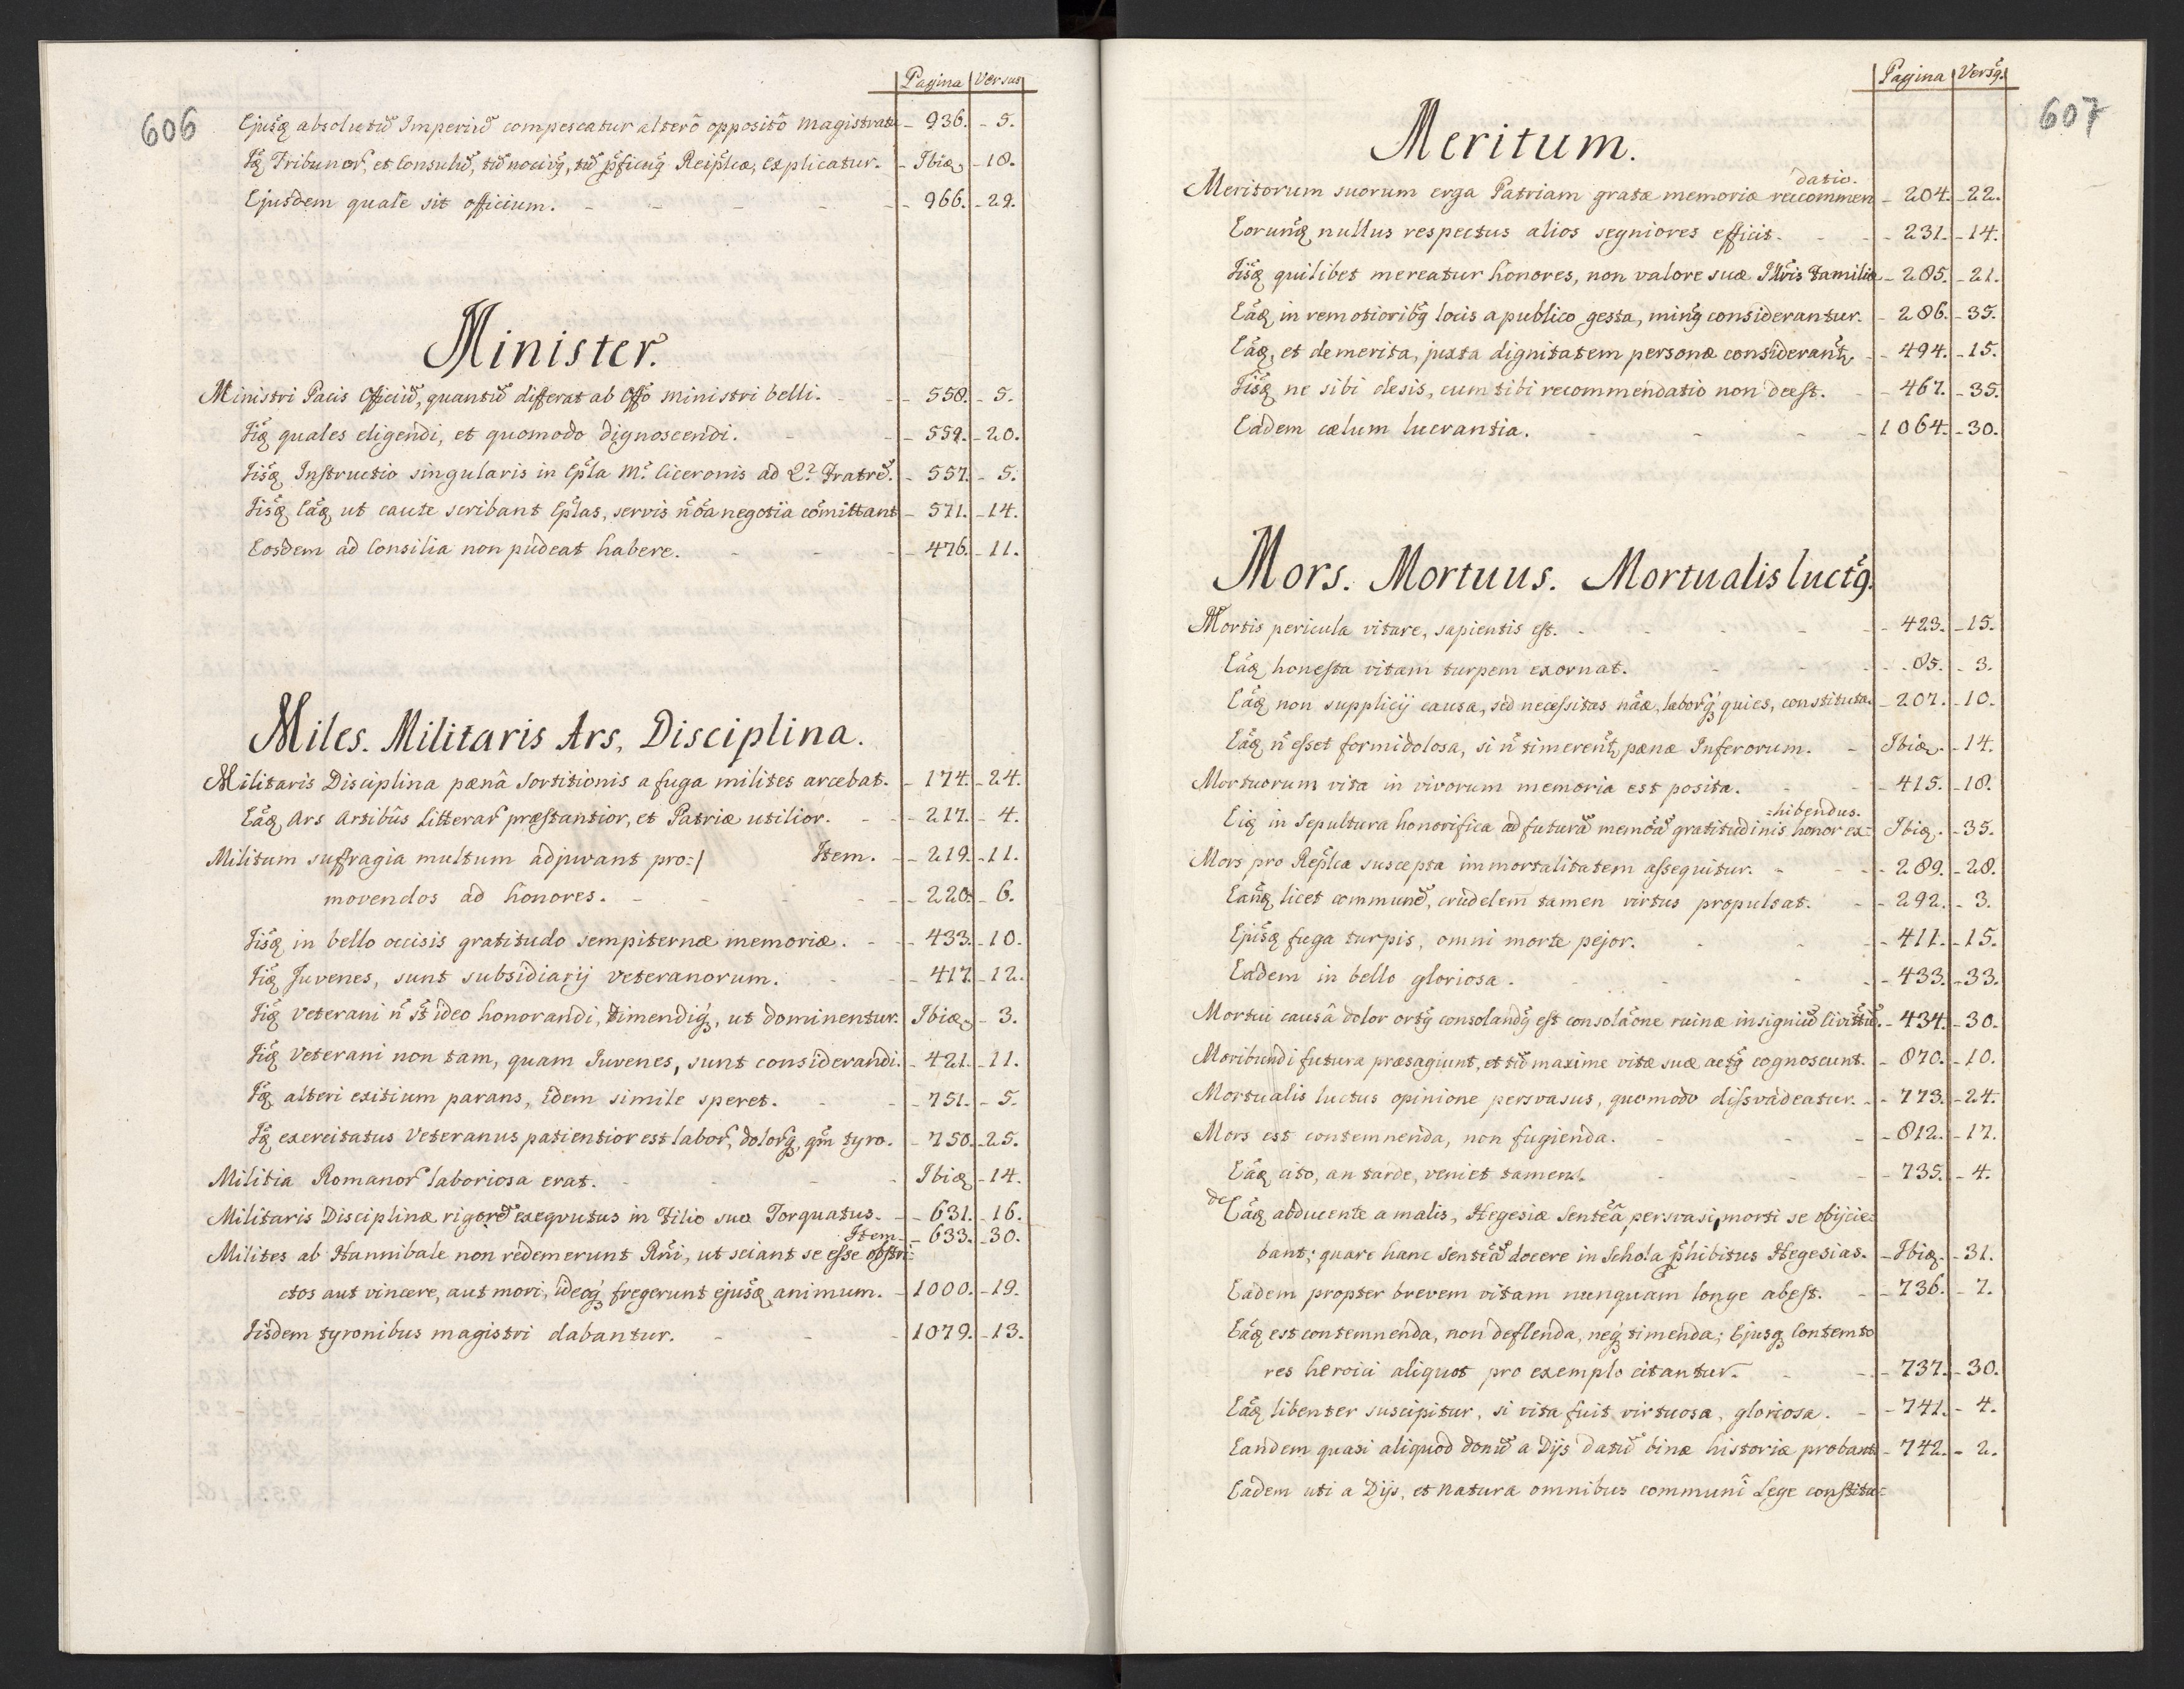 Pagina Versus
606
Ejusq absolutũ Imperiũ compescatur alterô oppositô magistratu - 936. - 5.
Iq Tribunor, et Consulũ, tũ nocivq, tũ pficuq Reiplcæ, explicatur. - Ibiq - 18.
Ejusdem quale sit officium. - 966. - 29.
Minister.
Ministri Pacis Officiũ, quantũ differat ab Offo ministri belli. - 558. - 5.
Iiq quales eligendi, et quomodo dignoscendi. - 559. - 20.
Iisq Instructio singularis in Epla M. Ciceronis ad Q. Fratrẽ. - 557. - 5.
Iisq Eaq ut caute scribant Eplas, servis ñ õa negotia cõmittant - 571. - 14.
Eosdem ad Consilia non pudeat habere. - 476. - 11.
Miles. Militaris Ars, Disciplina.
Militaris Disciplina pænâ sortitionis a fuga milites arcebat. - 174. - 24.
Eãq Ars Artibûs Litterar præstantior, et Patriæ utilior. - 217. - 4.
Militum suffragia multum adjuvant pro:/ Item. - 219. - 11.
movendos ad honores. - 220. - 6.
Iisq in bello occisis gratitudo sempiternæ memoriæ. - 433. - 10.
Iiq Juvenes, sunt subsidiarij veteranorum. - 417. - 12.
Iiq veterani ñ st ideo honorandi, timendiq, ut dominentur. Ibiq - 3.
Iiq Veterani non tam, quam Juvenes, sunt considerandi. - 421. - 11.
Iq alteri exitium parans, idem simile speret. - 751. - 5.
Iq exercitatus Veteranus patientior est labor, dolorq, qm tyro. - 750. - 25.
Militia Romanor laboriosa erat. - Ibiq - 14.
Militaris Disciplinæ rigorẽ exeqvutus in Filio suo Torquatus. - 631. - 16.
Item. - 633. - 30.
Milites ab Hannibale non redemerunt Rñi, ut sciant se esse obstri:
ctos aut vincere, aut mori, ideoq fregerunt ejusq animum. - 1000. - 19.
Iisdem tyronibus magistri dabantur. - 1079. - 13.
Pagina Versq.
607
Meritum.
datio.
Meritorum suorum erga Patriam gratæ memoriæ reccommen - 204. - 22.
Eorunq nullus respectus alios segniores efficit. - 231. - 14.
Iisq quilibet mereatur honores, non valore suæ Illris Familiæ - 285. - 21.
Eãq in remotioribq locis a publico gesta, minq considerantur. - 286. - 35.
Eãq, et demerita, juxta dignitatem personæ considerant. - 494. - 15.
Iisq ne sibi desis, cum tibi recommendatio non deest. - 467. - 35.
Eadem cælum lucrantia. - 1064. - 30.
Mors. Mortuus. Mortualis luctq.
Mortis pericula vitare, sapientis est. - 423. - 15.
Eãq honesta vitam turpem exornat. - 85. - 3.
Eãq non supplicij causa, sed necessitas nãæ, laborq quies, constituta. - 207. - 10.
Eãq ñ esset formidolosa, si ñ timerent pænæ Inferorum. - Ibiq. - 14.
Mortuorum vita in vivorum memoria est posita. - 415. - 18.
-hibendus.
Eiq in Sepultura honorifica ad futurã memoã gratitudinis honor ex: Ibiq. - 35.
Mors pro Replca suscepta immortalitatem assequitur. - 289. - 28.
Eanq licet communẽ, crudelem tamen virtus propulsat. - 292. - 3.
Ejusq fuga turpis, omni morte pejor. - 411. - 15.
Eadem in bello gloriosa. - 433. - 33.
Mortui causâ dolor ortq consolandq est consolãone ruinæ insigniũ Civitatũ. - 434. - 30.
Moribundi futura præsagiunt, et tũ maxime vitæ suæ actq cognoscunt. - 870. - 10.
Mortualis luctus opinione persvasus, quomodo dissvadeatur. - 773. - 24.
Mors est contemnenda, non fugienda. - 812. - 17.
Eãq cito, an tarde, veniet tamen. - 735. - 4.
de Eãq abducente a malis, Hegesiæ Sentẽa persvasi, morti se objicie:
bant; quare hanc Sentẽã docere in Schola phibitus Hegesias. - Ibiq. - 31.
Eadem propter brevem vitam nunquam longe abest. - 736. - 7.
Eãq est contemnenda, non deflenda, neq timenda; Ejusq Contemto
res heroici aliquot pro exemplo citantur. - 737. - 30.
Eãq libenter suscipitur, si vita fuit virtuosa, gloriosa. - 741. - 4.
Eandem quasi aliquod donũ a Dijs datũ binæ historiæ probant - 742. - 2.
Eadem uti a Dijs, et Natura omnibus communî Lege constitu: